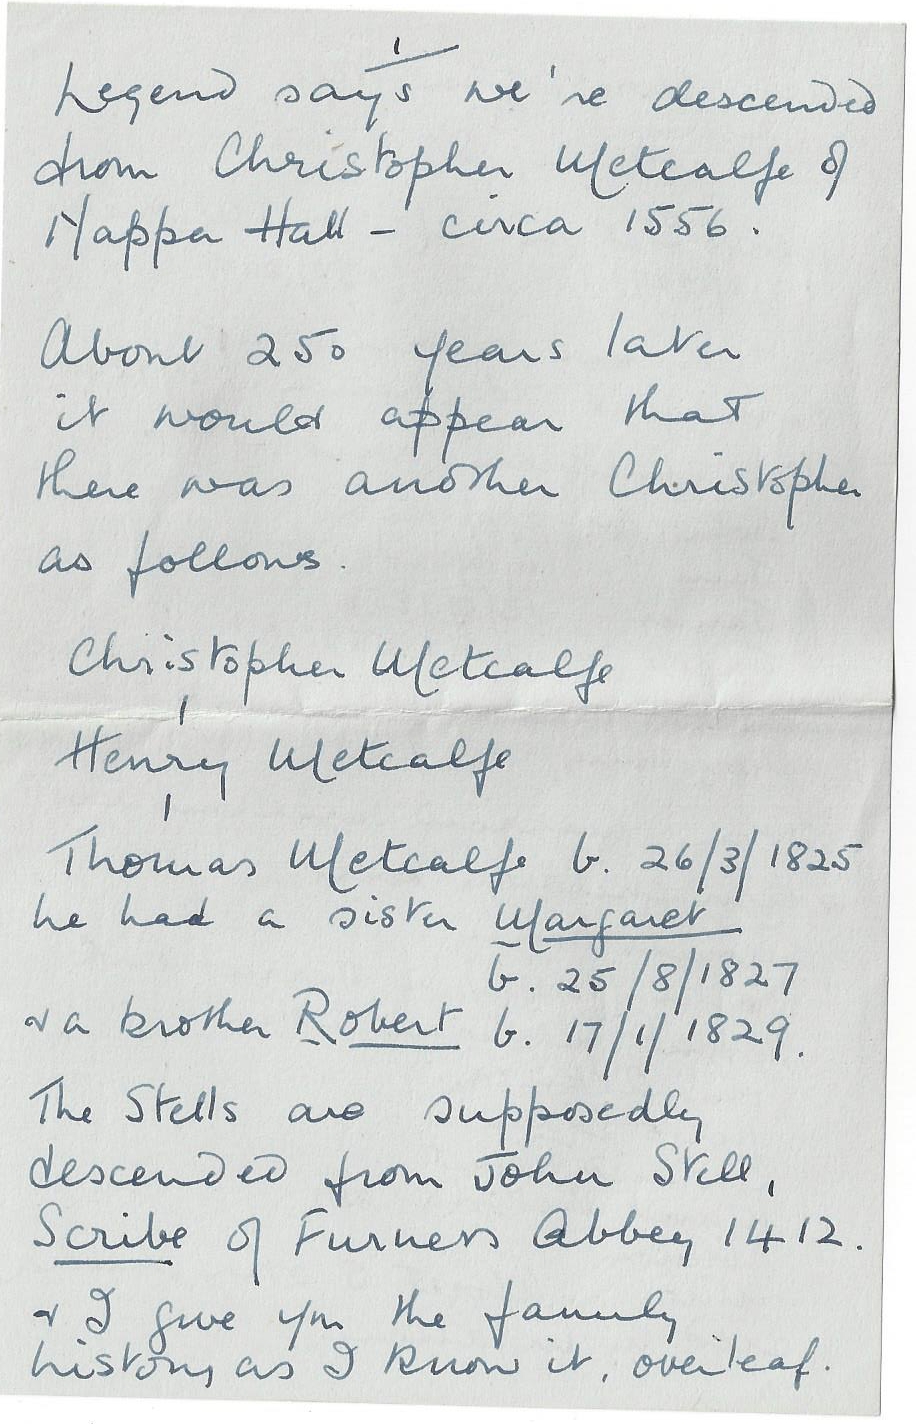 1
Legend says we're descended
from Christopher Metcalfe of
Nappa Hall - circa 1556.
About 250 years later
it would appear that
there was another Christopher
as follows.
Christopher Metcalfe
Henry Metcalfe
Thomas Metcalfe b. 26/3/1825
he had a sister Margaret
b. 25/8/1827
& a brother Robert b. 17/1/1829.
The Stells are supposedly
descended from John Stell,
Scribe of Furness Abbey 1412.
& I give you the family
history as I know it, overleaf.